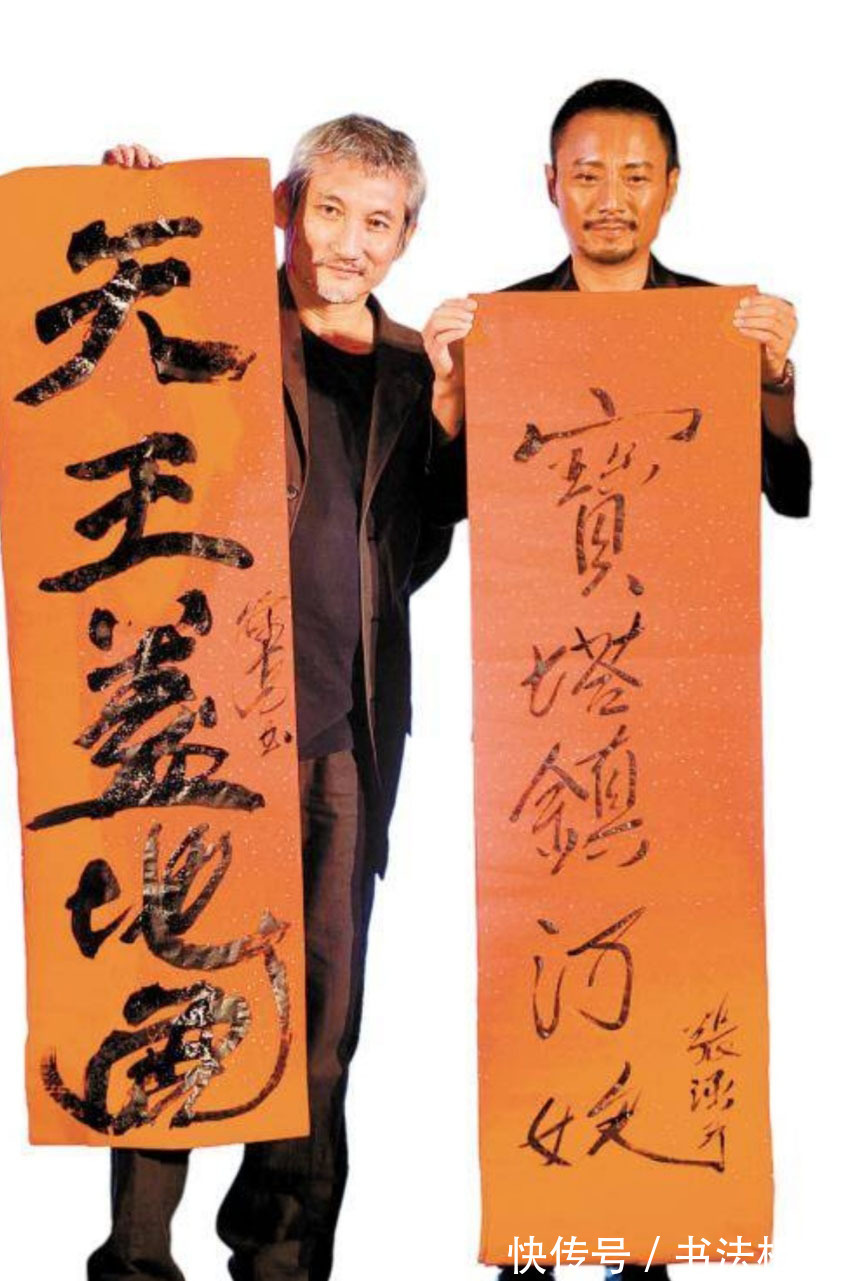 天王蓋地虎
寶塔鎮河妖
張涵予
快传号 / 书法